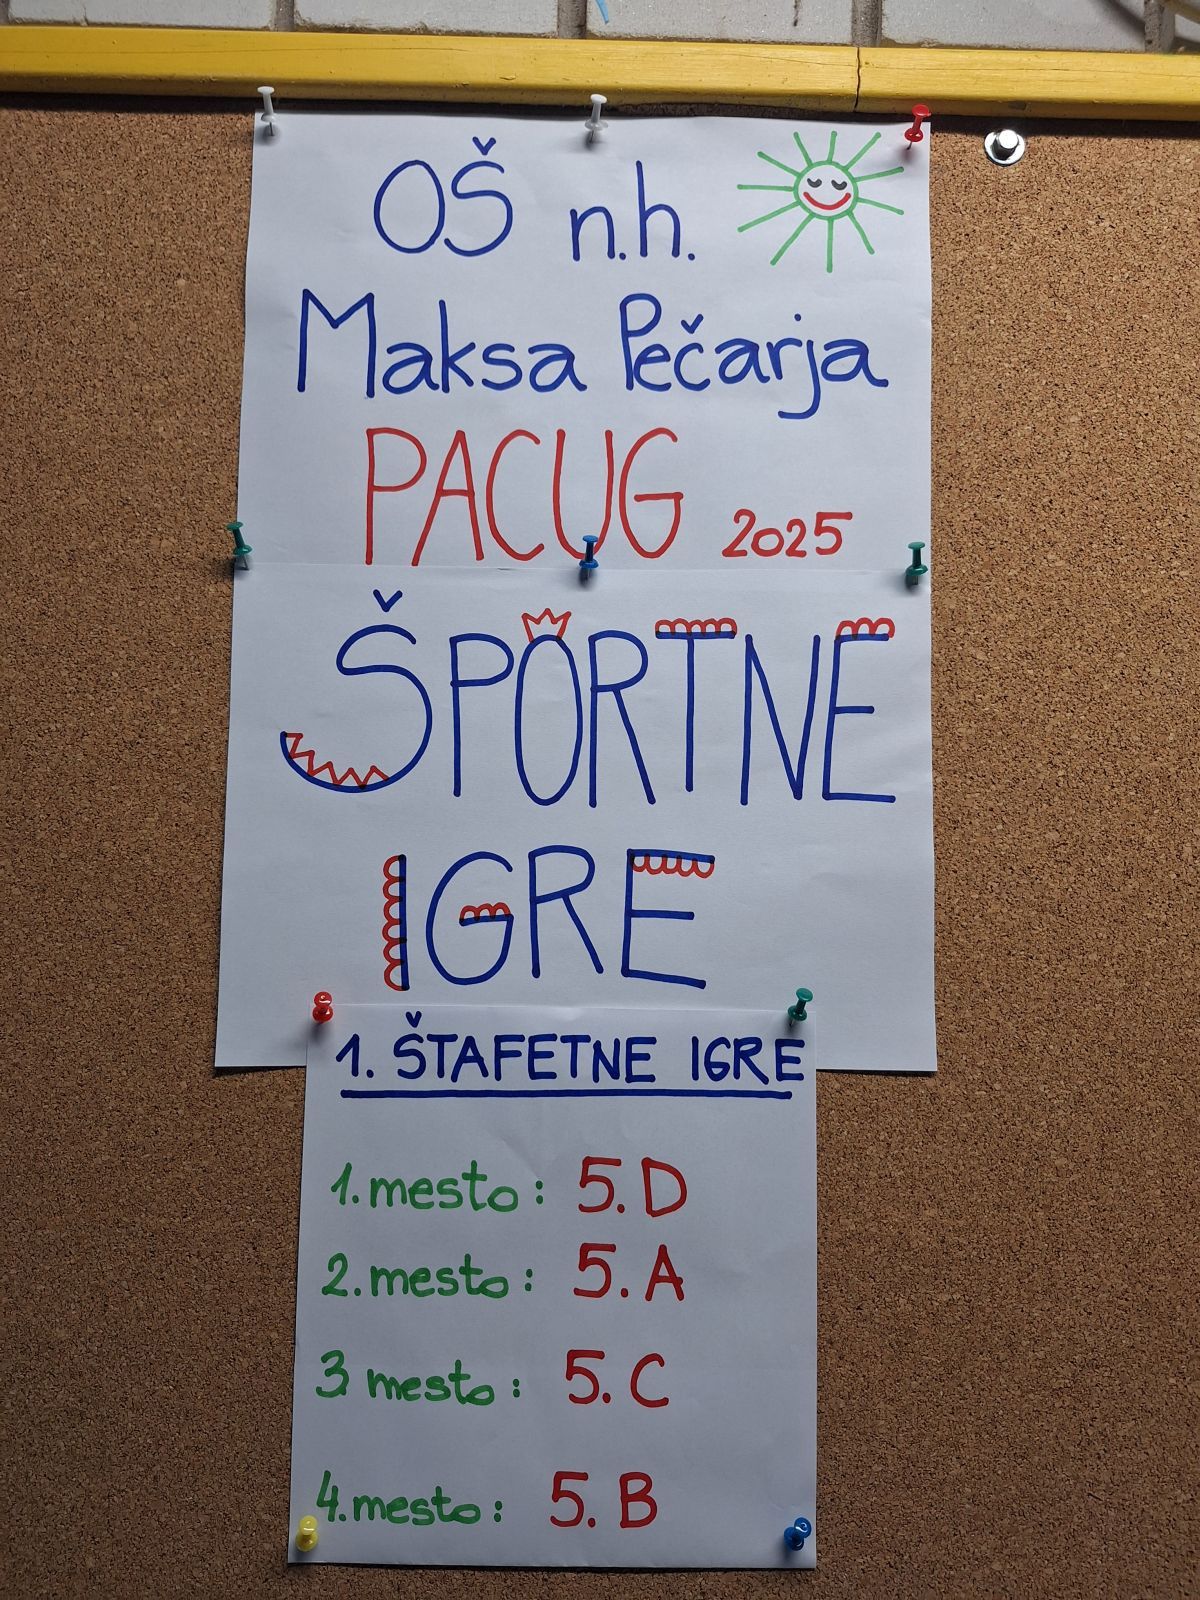 OŠ n.h.
Maksa Pečarja
PACUG 2025
ŠPORTNE
IGRE
1. ŠTAFETNE IGRE
1. mesto: 5. D
2. mesto: 5. A
3 mesto: 5. C
4. mesto: 5. B